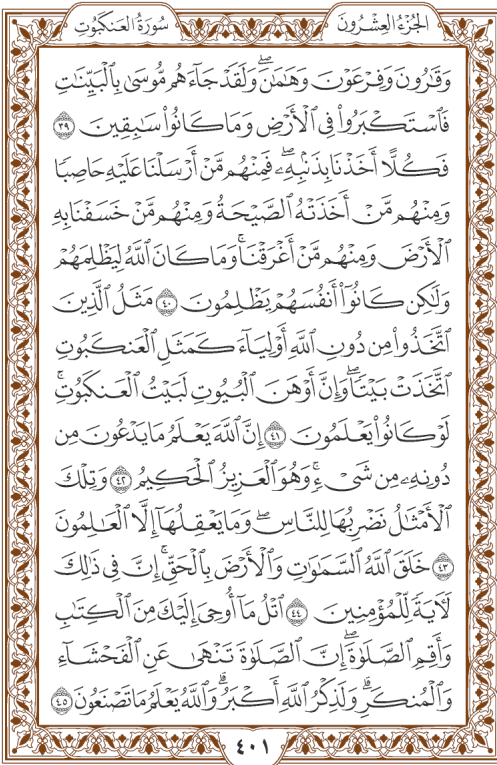 الجزء العشرون
سورة العنكبوت
وَقَٰرُونَ وَفِرۡعَوۡنَ وَهَٰمَٰنَۖ وَلَقَدۡ جَآءَهُم مُّوسَىٰ بِٱلۡبَيِّنَٰتِ
فَٱسۡتَكۡبَرُواْ فِي ٱلۡأَرۡضِ وَمَا كَانُواْ سَٰبِقِينَ ٣٩
فَكُلًّا أَخَذۡنَا بِذَنۢبِهِۦۖ فَمِنۡهُم مَّنۡ أَرۡسَلۡنَا عَلَيۡهِ حَاصِبٗا
وَمِنۡهُم مَّنۡ أَخَذَتۡهُ ٱلصَّيۡحَةُ وَمِنۡهُم مَّنۡ خَسَفۡنَا بِهِ
ٱلۡأَرۡضَ وَمِنۡهُم مَّنۡ أَغۡرَقۡنَاۚ وَمَا كَانَ ٱللَّهُ لِيَظۡلِمَهُمۡ
وَلَٰكِن كَانُوٓاْ أَنفُسَهُمۡ يَظۡلِمُونَ ٤٠ مَثَلُ ٱلَّذِينَ
ٱتَّخَذُواْ مِن دُونِ ٱللَّهِ أَوۡلِيَآءَ كَمَثَلِ ٱلۡعَنكَبُوتِ
ٱتَّخَذَتۡ بَيۡتٗاۖ وَإِنَّ أَوۡهَنَ ٱلۡبُيُوتِ لَبَيۡتُ ٱلۡعَنكَبُوتِۚ
لَوۡ كَانُواْ يَعۡلَمُونَ ٤١ إِنَّ ٱللَّهَ يَعۡلَمُ مَا يَدۡعُونَ مِن
دُونِهِۦ مِن شَيۡءٖۚ وَهُوَ ٱلۡعَزِيزُ ٱلۡحَكِيمُ ٤٢ وَتِلۡكَ
ٱلۡأَمۡثَٰلُ نَضۡرِبُهَا لِلنَّاسِۖ وَمَا يَعۡقِلُهَآ إِلَّا ٱلۡعَٰلِمُونَ
٤٣ خَلَقَ ٱللَّهُ ٱلسَّمَٰوَٰتِ وَٱلۡأَرۡضَ بِٱلۡحَقِّۚ إِنَّ فِي ذَٰلِكَ
لَأٓيَةٗ لِّلۡمُؤۡمِنِينَ ٤٤ ٱتۡلُ مَآ أُوحِيَ إِلَيۡكَ مِنَ ٱلۡكِتَٰبِ
وَأَقِمِ ٱلصَّلَوٰةَۖ إِنَّ ٱلصَّلَوٰةَ تَنۡهَىٰ عَنِ ٱلۡفَحۡشَآءِ
وَٱلۡمُنكَرِۗ وَلَذِكۡرُ ٱللَّهِ أَكۡبَرُۗ وَٱللَّهُ يَعۡلَمُ مَا تَصۡنَعُونَ ٤٥
٤٠١